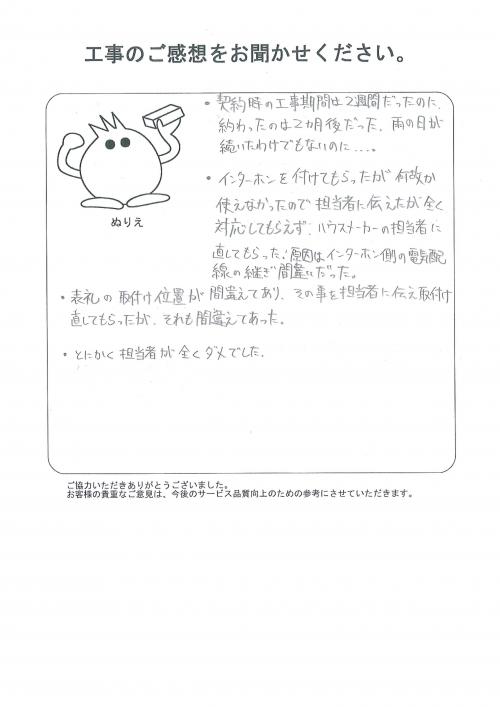 工事のご感想をお聞かせください。
・契約時の工事期間は2週間だったのに、
終わったのは2カ月後だった。雨の日が
続いたわけでもないのに....。
・インターホンを付けてもらったが何故か
使えなかったので担当者に伝えたが全く
対応してもらえず、ハウスメーカーの担当者に
直してもらった。原因はインターホン側の電気配
線の継ぎ間違いだった。
ぬりえ
・表札の取付け位置が間違えてあり、その事を担当者に伝え取付け
直してもらったが、それも間違えてあった。
・とにかく担当者が全くダメでした。
ご協力いただきありがとうございました。
お客様の貴重なご意見は、今後のサービス品質向上のための参考にさせていただきます。